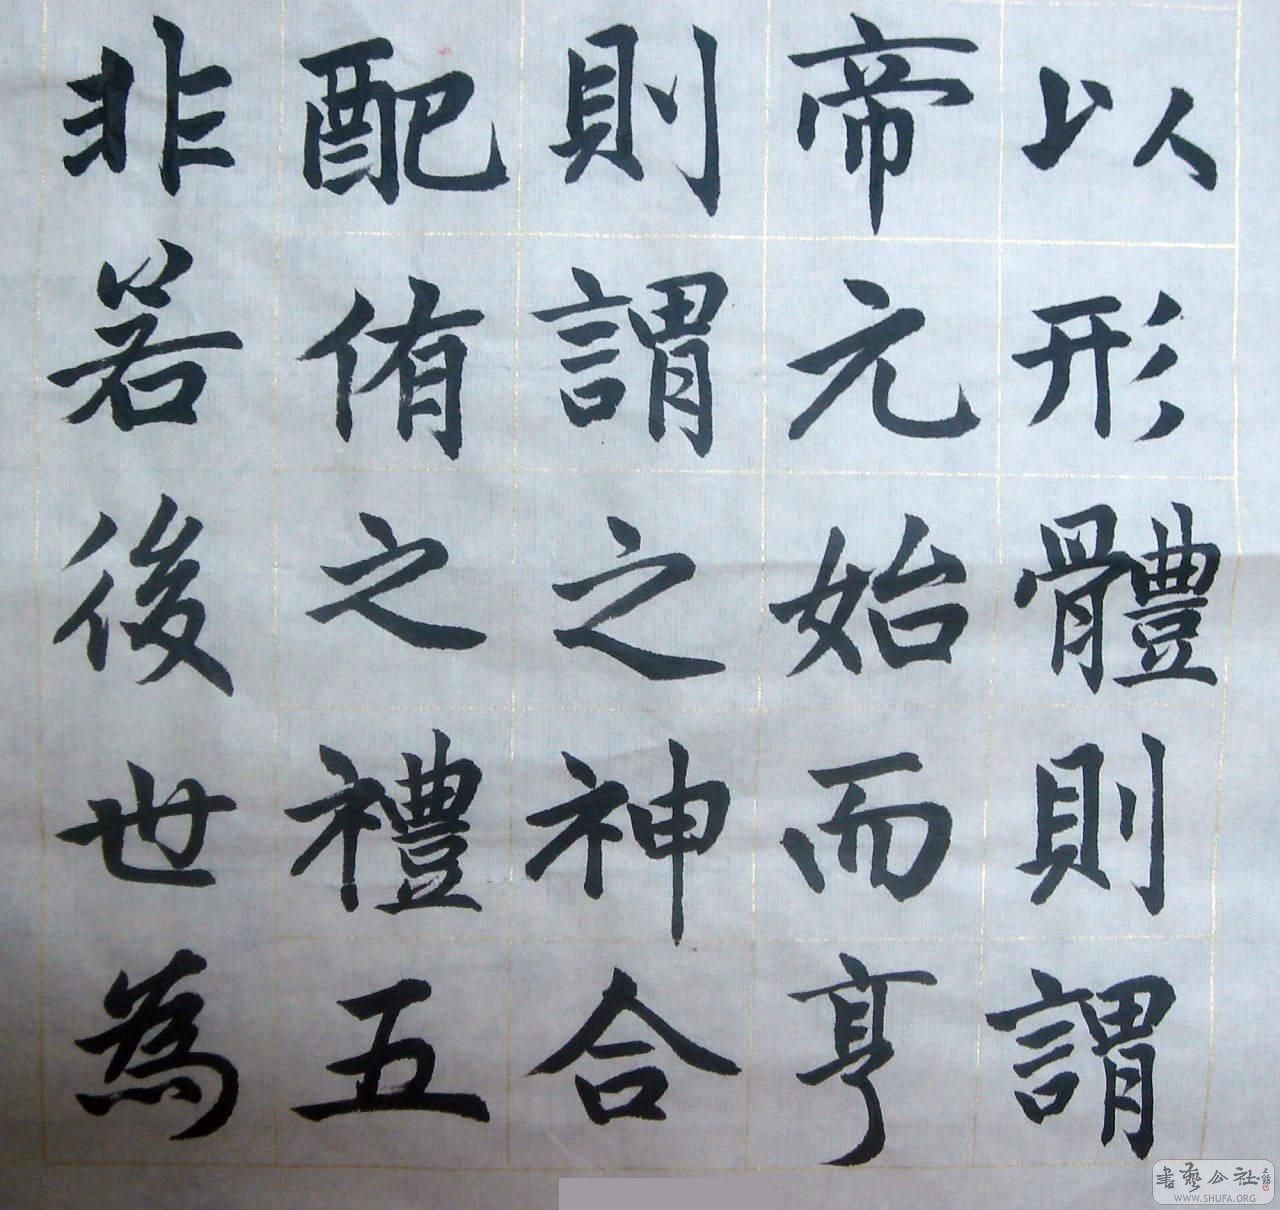 以形體則謂
帝元始而亨
則謂之神合
配侑之禮五
非若後世為
書藝公社
WWW.SHUFA.ORG